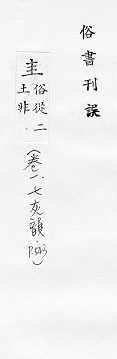 俗書刊誤
圭 俗從二
土非.
(卷一.七灰韻 P.543)